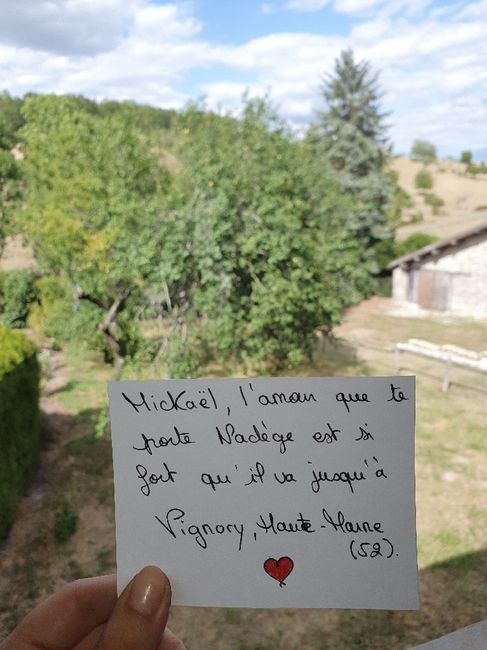 Mickaël, l'amour que te
porte Nadège est si
fort qu'il va jusqu'à
Vignory, Haute-Marne
(52).